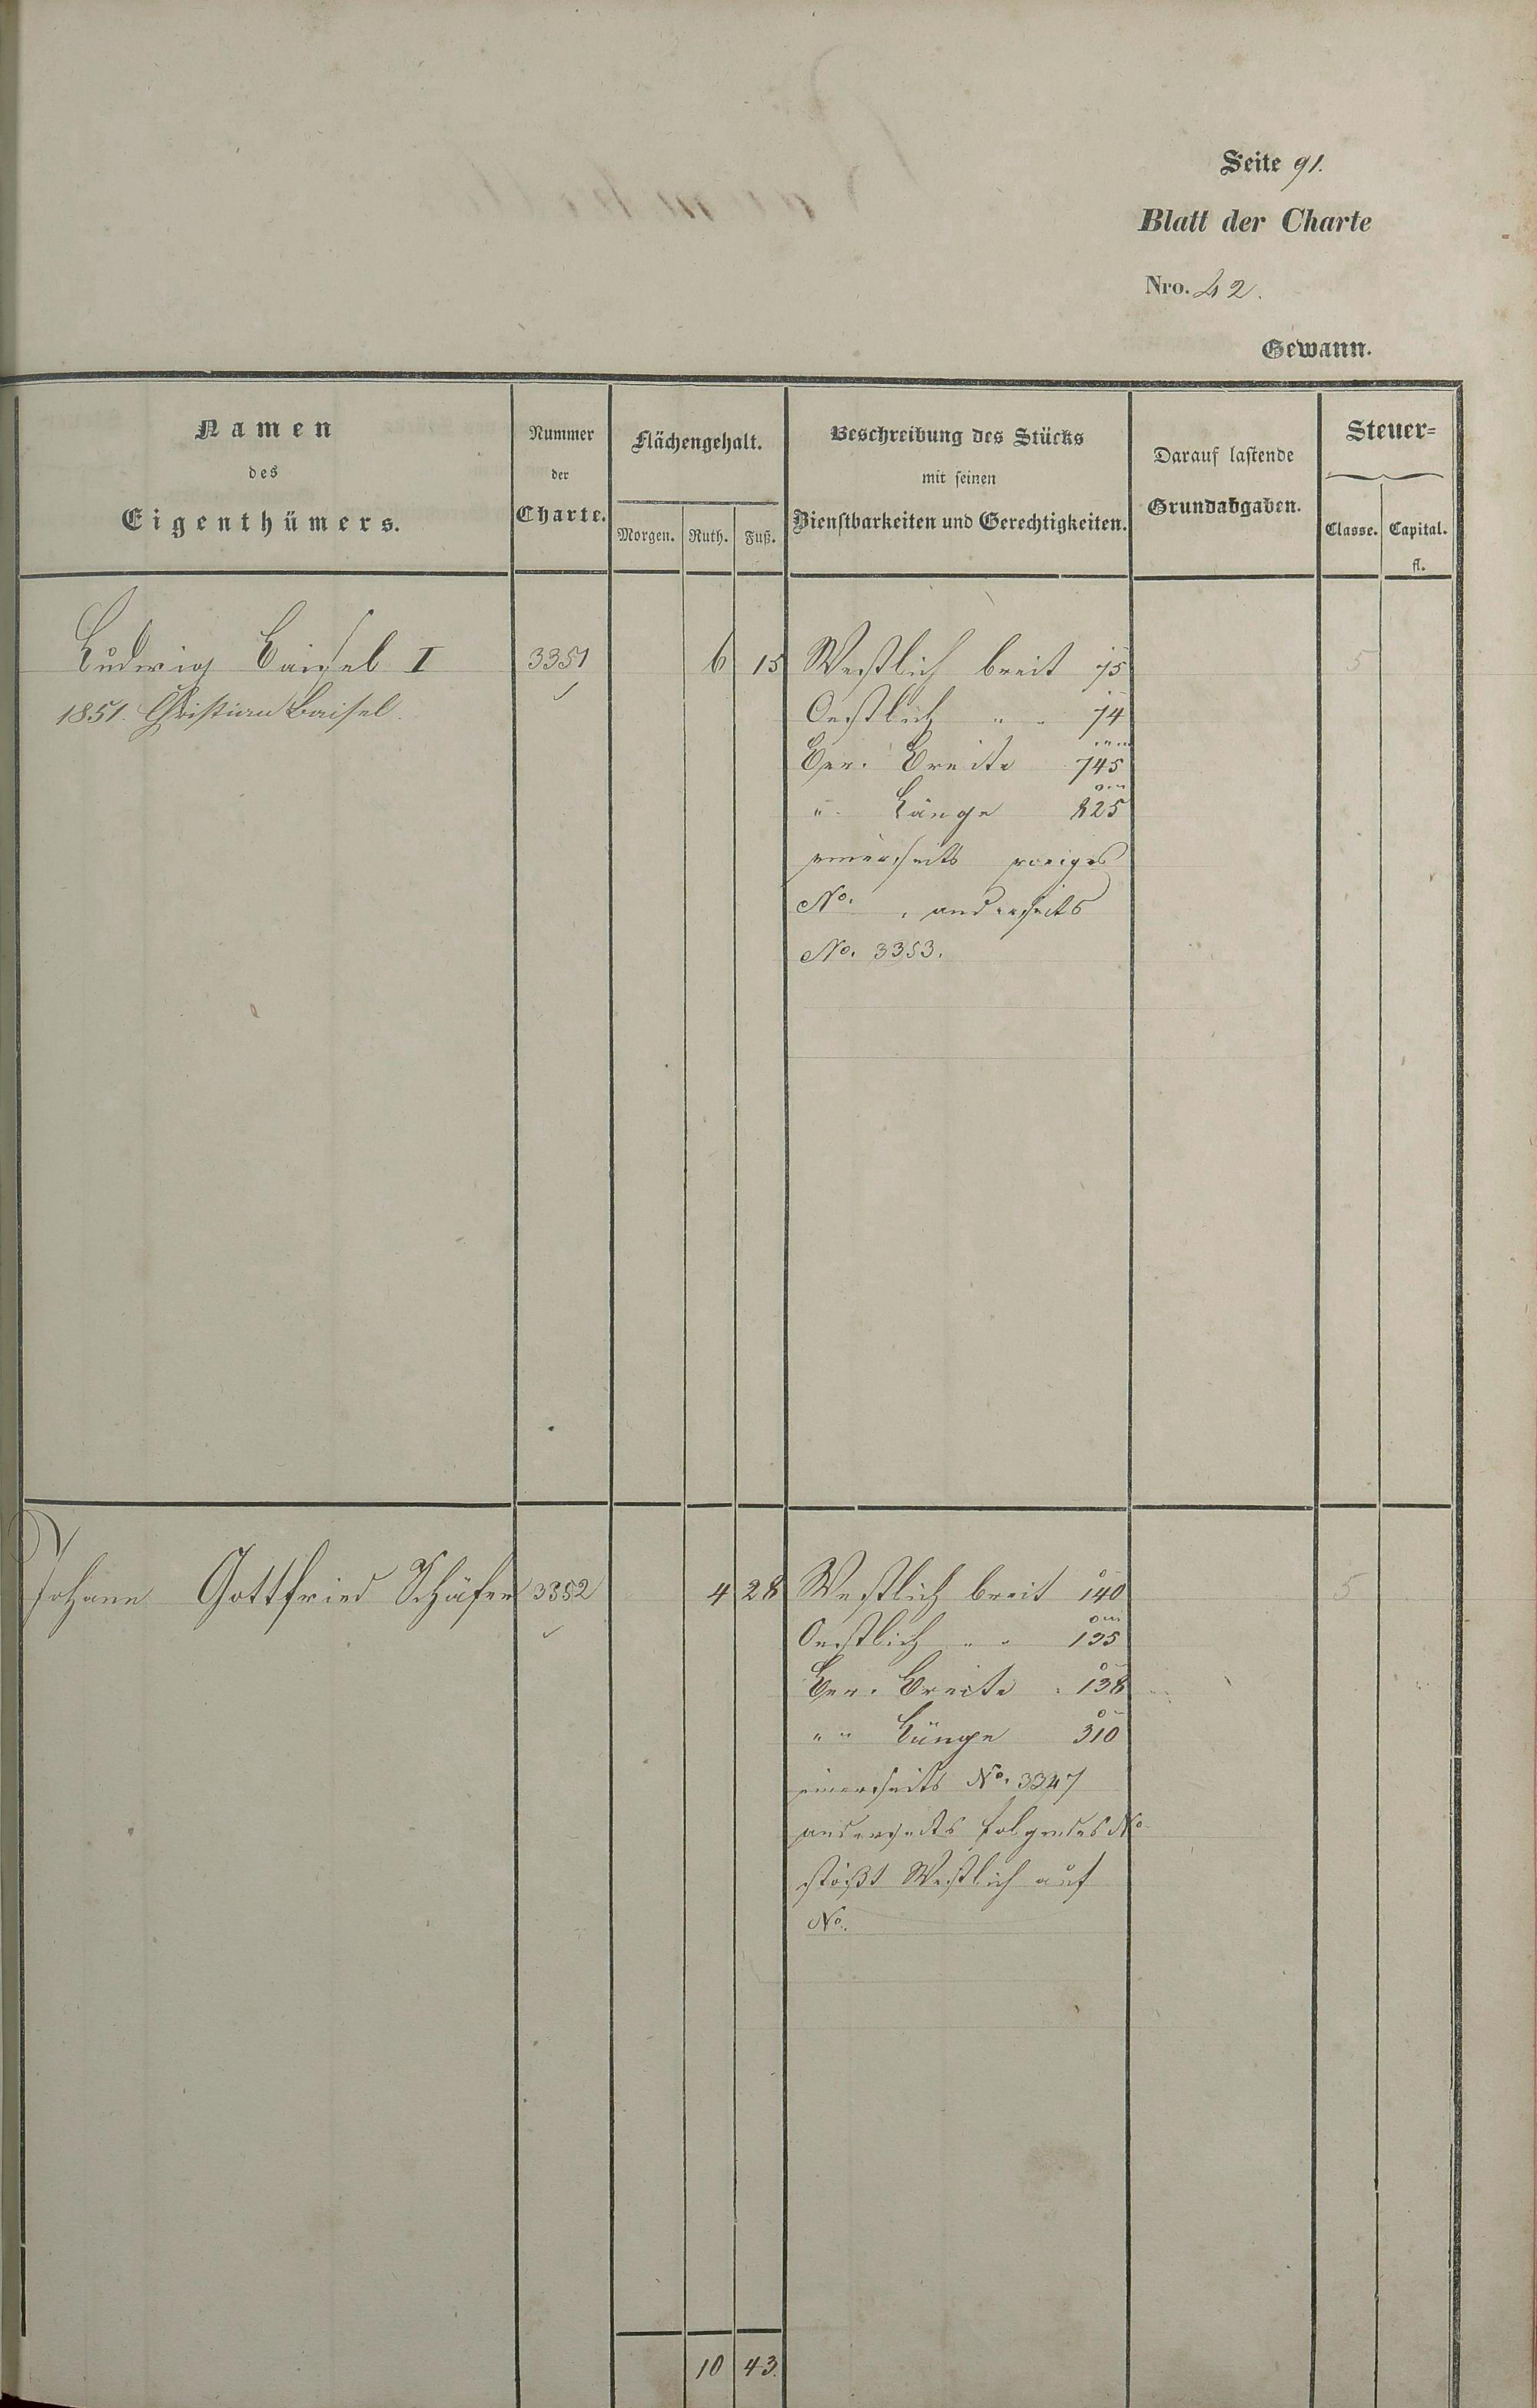 Seite 91.
Blatt der Charte
Nro. 42.
Gewann.
Namen
des
Eigenthümers.
Nummer
der
Charte.
Flächengehalt.
Morgen. Ruth. Fuß.
Beschreibung des Stücks
mit seinen
Dienstbarkeiten und Gerechtigkeiten.
Darauf lastende
Grundabgaben.
Steuer=
Classe. Capital.
fl.
Ludwig Baisel I 3351 6 15 Westlich breit 75 5
1851. Christian Baisel.
Oestlich " " 74
Ger. Breite 745
" Länge 825
einerseits voriges
No. , anderseits
No. 3353.
Johann Gottfried Schäfer 3352 4 28 Westlich breit 140 5
Oestlich " " 135
Ger. Breite 138
" " Länge 310
einerseits No. 3347
anderseits folgendes No
stößt Westlich auf
No.
10 43.